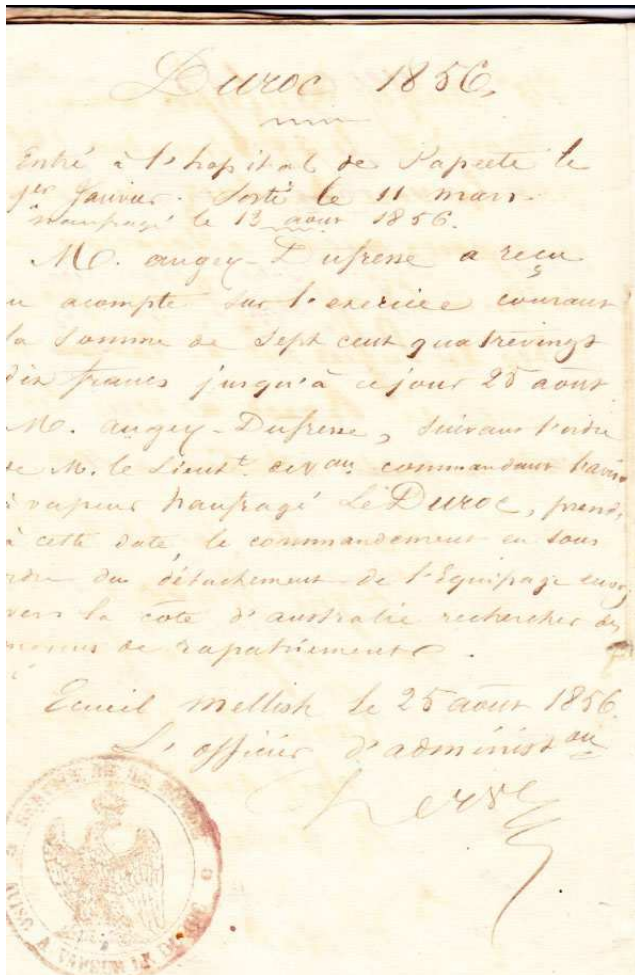 Duroc 1856.
Entré à l'hopital de Papeete le
1er Janvier. Sorti le 11 mars.
naufragé le 13 aout 1856.
M. augey-Dufresse a reçu
acompte sur l'exercice courant
la somme de Sept cent quatrevingt
dix francs jusqu'à ce jour 25 aout.
M. augey-Dufresse, suivant l'ordre
de M. le Lieutt. de vau commandant l'aviso
à vapeur naufragé Le Duroc, prend,
à cette date, le commandement en sous
ordre du détachement de l'Equipage
vers la côte d'australie rechercher des
moyens de rapatriement.
Ecueil mellish le 25 aout 1856.
L'officier d'administ on
AVISO A VAPEUR LE DUROC